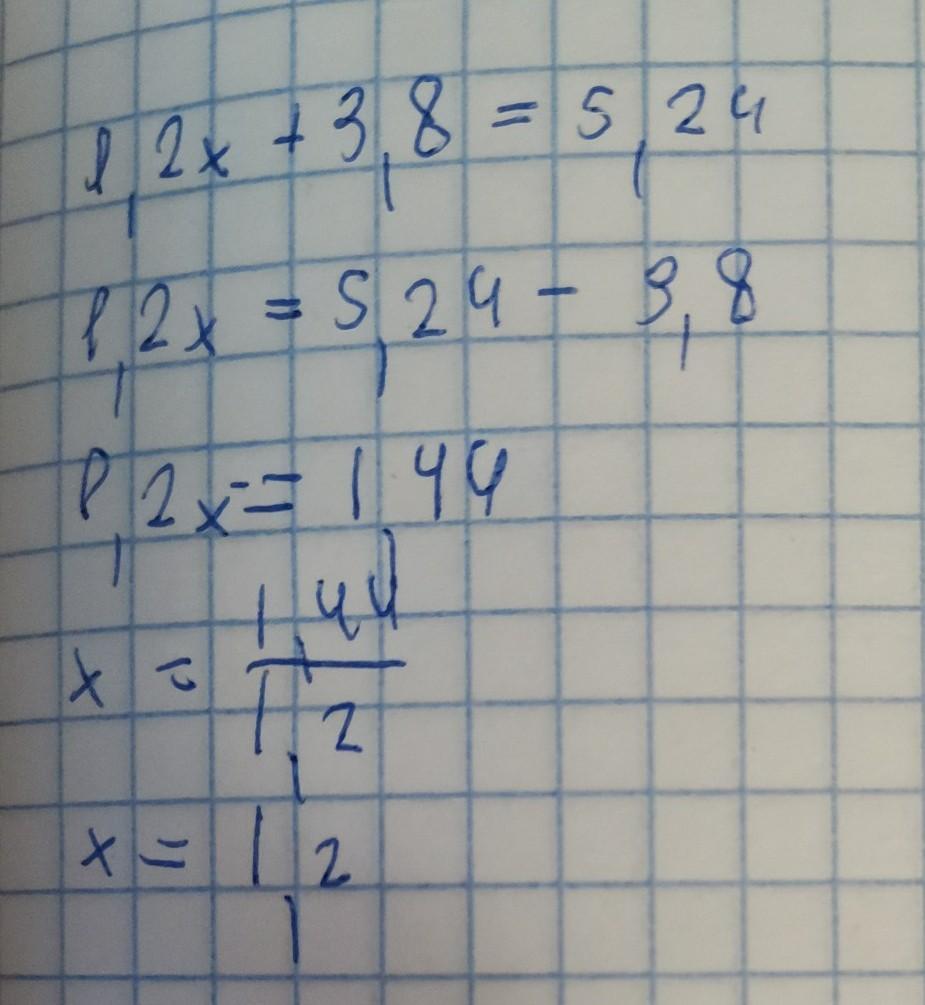 1,2x + 3,8 = 5,24
1,2x = 5,24 - 3,8
1,2x = 1,44
x = 1,44/1,2
x = 1,2